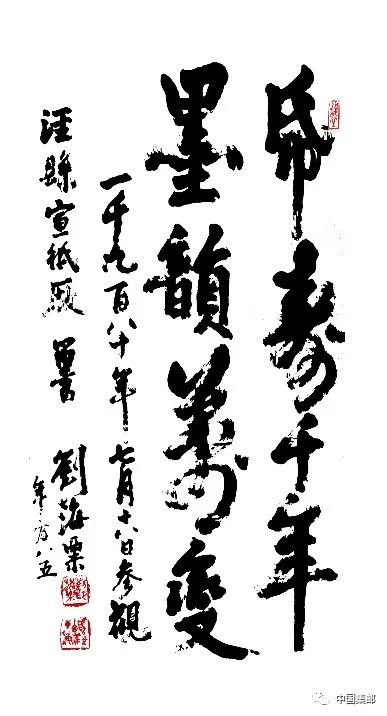 帋壽千年
墨韻萬變
一千九百八十年七月十八日参觀
涇縣宣紙厰
劉海粟
年方八五
中国集邮